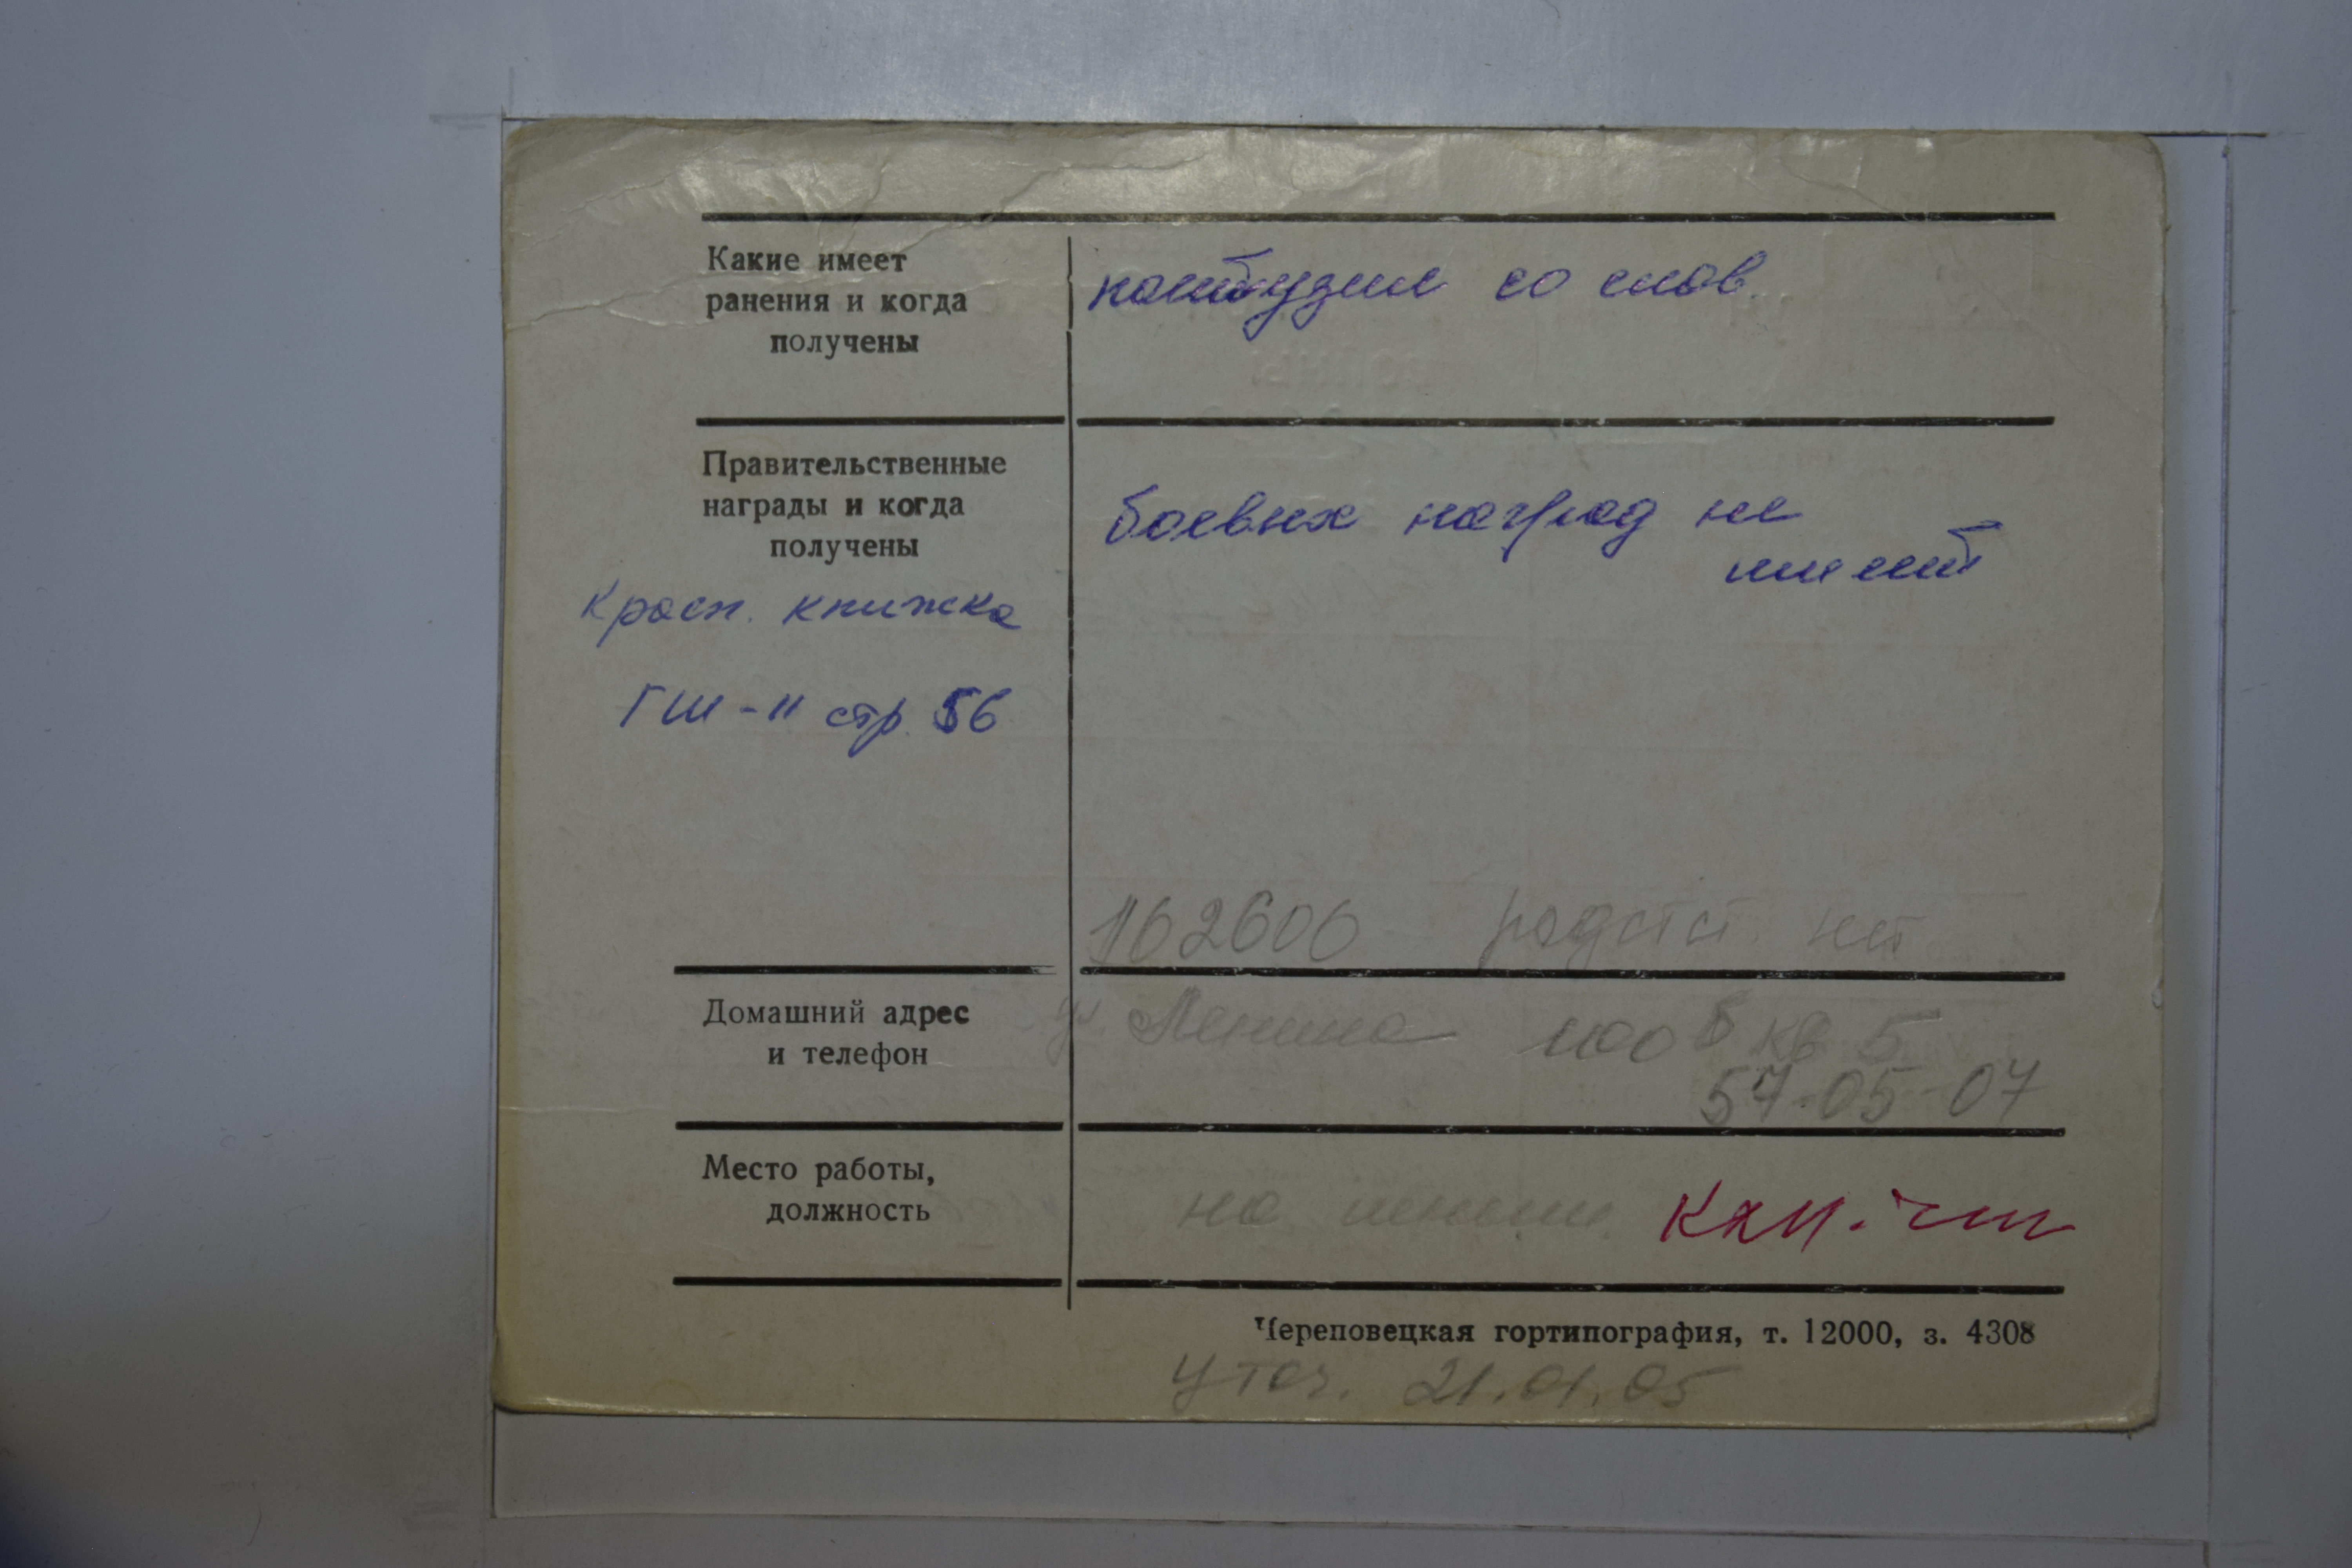 Какие имеет
ранения и когда
получены
контузия со слов
Правительственные
награды и когда
получены
боевых наград не
имеет
Красн. книжка
ГШ-II стр. 56
162606 родств. нет
Домашний адрес
и телефон
ул Ленина 100б кв 5
57-05-07
Место работы,
должность
на пенсии
Череповецкая гортипография, т. 12000, з. 4308
Уточ. 21.01.05